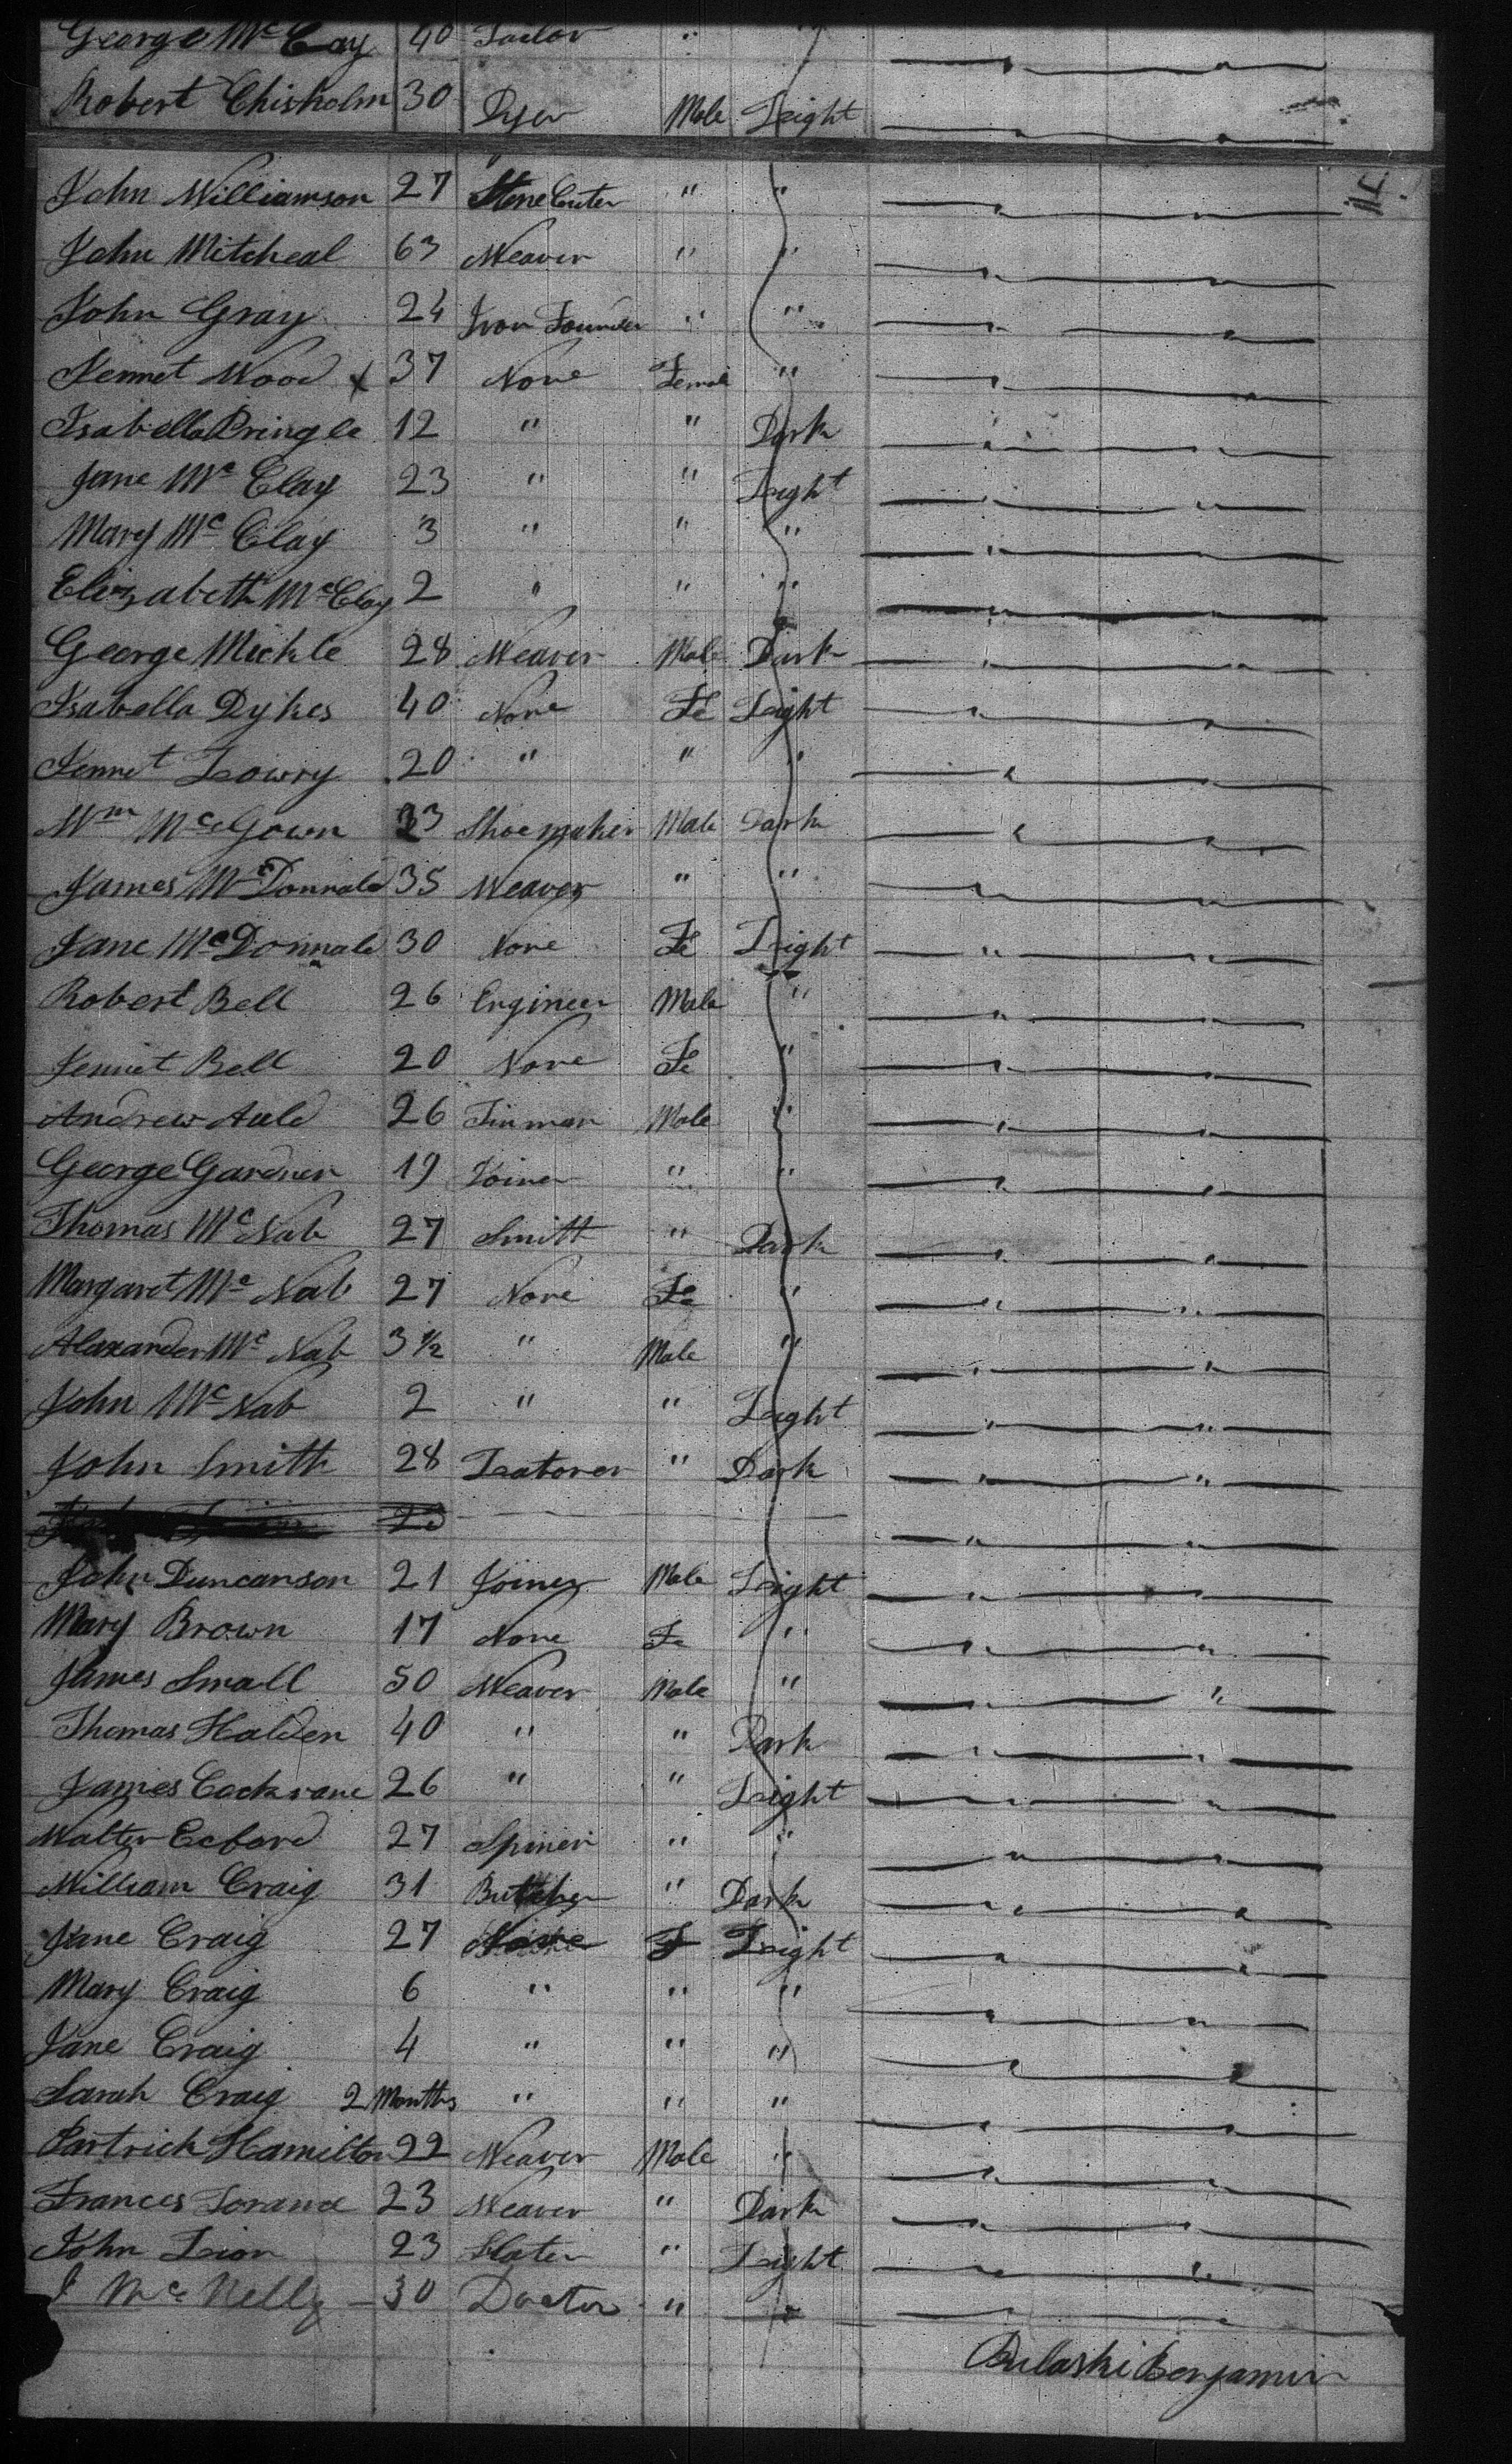 George Mc Clay 40 Tailor "
Robert Chisholm 30 Dyer Male Light
John Williamson 27 Stone Cuter " "
John Mitcheal 63 Weaver " "
John Gray 24 Iron Founder " "
Jennet Wood x 37 None Female "
Isabella Pringle 12 " " Dark
Jane Mc Clay 23 " " Light
Mary Mc Clay 3 " " "
Elizabeth Mc Clay 2 " " "
George Mickle 28 Weaver Male Dark
Isabella Dykes 40 None Fe Light
Jennet Lowry 20 " " "
Wm Mc Gown 33 Shoemaker Male Dark
James Mc Donnald 35 Weaver " "
Jane Mc Donnald 30 None Fe Light
Robert Bell 26 Engineer Male "
Jennet Bell 20 None Fe "
Andrew Auld 26 Tinman Male "
George Gardner 19 Joiner " "
Thomas Mc Nab 27 Smith " Dark
Margaret Mc Nab 27 None Fe "
Alaxander Mc Nab 3 1/2 " Male "
John Mc Nab 2 " " Light
John Smith 28 Laborer " Dark
John Duncanson 21 Joiner Male Light
Mary Brown 17 None Fe "
James Small 50 Weaver Male "
Thomas Halden 40 " " Dark
James Cockrane 26 " " Light
Walter Ecford 27 Spiner " "
William Craig 31 Butcher " Dark
Jane Craig 27 None F Light
Mary Craig 6 " " "
Jane Craig 4 " " "
Sarah Craig 2 Months " " "
Partrick Hamilton 22 Weaver Male "
Frances Lorance 23 Weaver " Dark
John Lion 23 Slater " Light
J Mc Nelly 30 Doctor "
Pulaski Benjamin